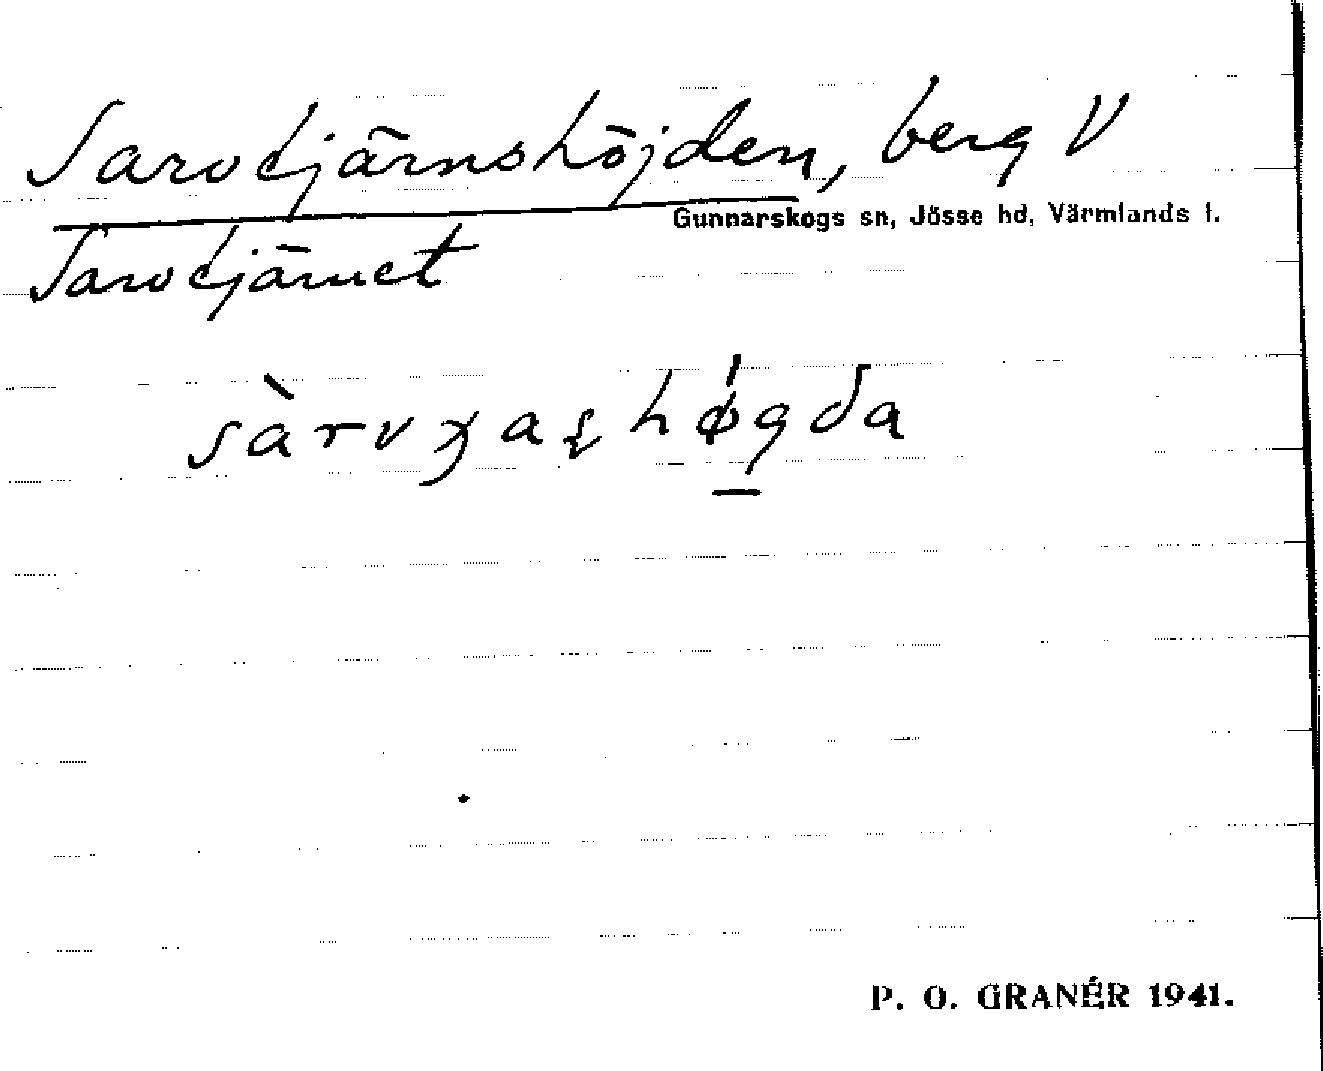 Sarvtjärnshöjden, berg V
Gunnarskogs sn, Jösse hd, Värmlands l.
Sarvtjärnet
P. O. GRANÉR 1941.